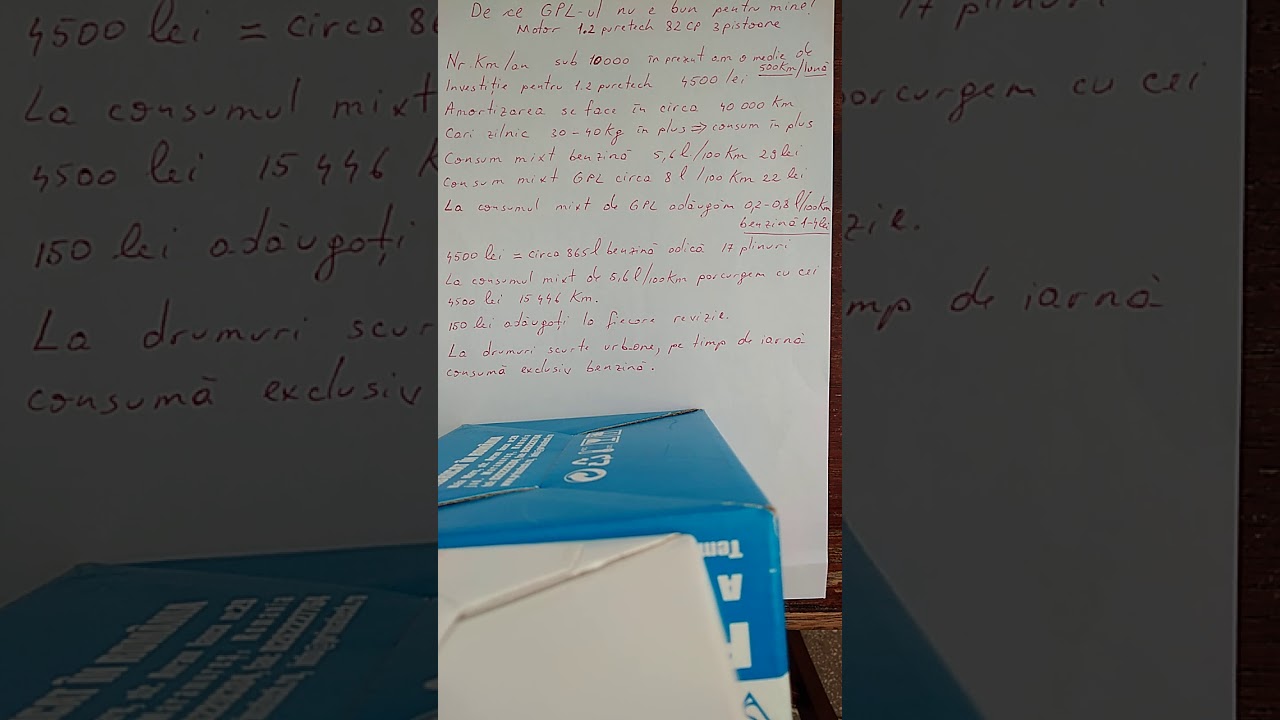 De ce GPL-ul nu e bun pentru mine!
Motor 1.2 puretech 82 CP 3 pistoane
Nr. Km/an sub 10000 în prezent am o medie de
500Km/lună
Investiție pentru 1.2 puretech 4500 lei
Amortizarea se face în circa 40 000 Km
Cari zilnic 30-40Kg în plus => consum în plus
Consum mixt benzină 5,6 l/100 Km 29 lei
Consum mixt GPL circa 8 l/100 Km 22 lei
La consumul mixt de GPL adăugăm 0,2-0,8 l/100Km
benzină 1-4 lei
4500 lei = circa 865 l benzină adică 17 plinuri
La consumul mixt de 5,6 l/100Km parcurgem cu cei
4500 lei 15 446 Km.
150 lei adăugați la fiecare revizie.
La drumuri scurte urbane, pe timp de iarnă
consumă exclusiv benzină.